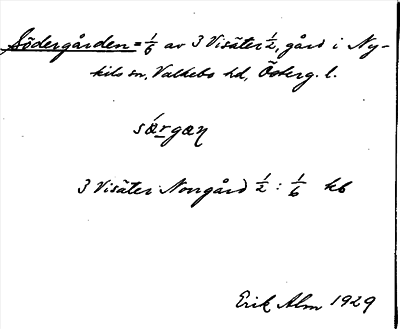 Södergården = 1/6 av 3 Visäter 1/2, gård i Ny-
kils sn, Valkebo hd, Österg. l.
særgæn
3 Visäter Norrgård 1/2 : 1/6 kb
Erik Alm 1929